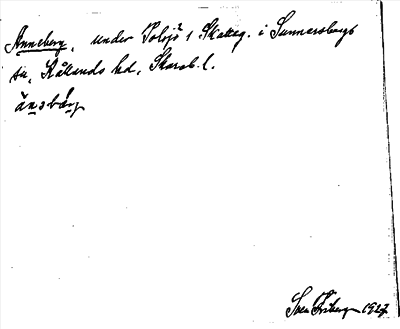 Anneberg, under Tolsjö 1 Skatteg. i Sunnersbergs
sn, Kållands hd, Skarab. l.
ä̀nsbä́rj
Sven Friberg 1927